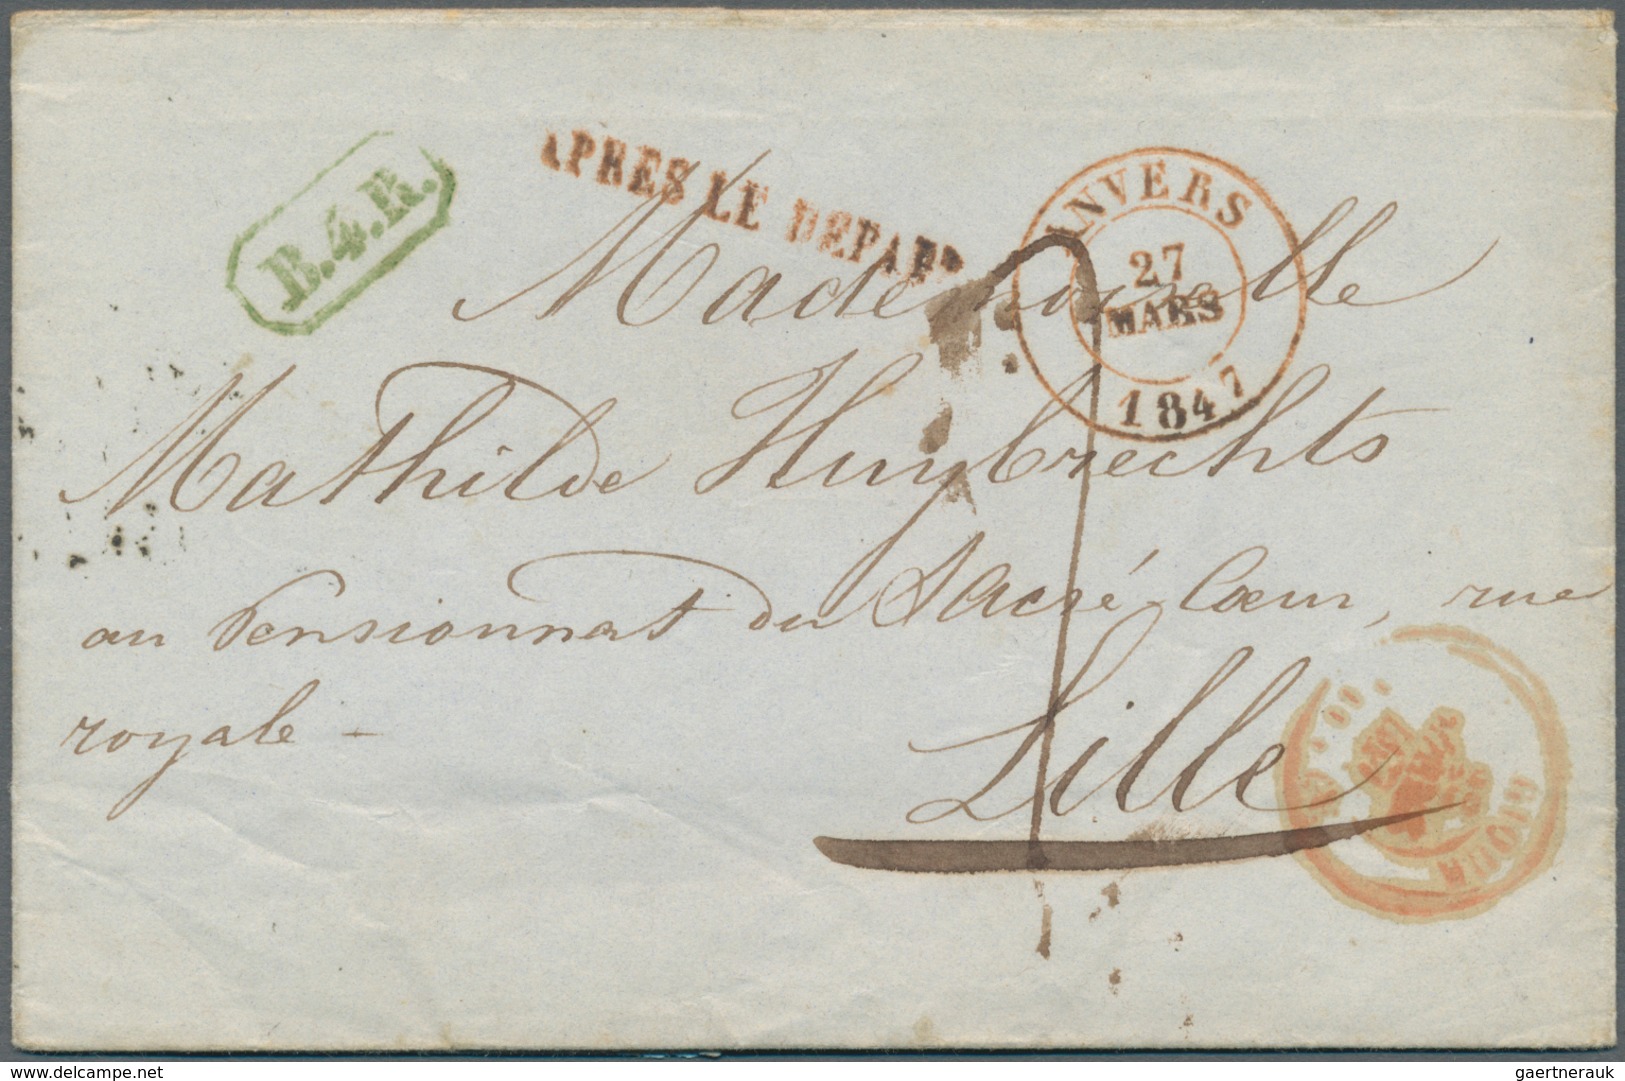 B.4.R.
APRES LE DEPART
ANVERS
27
MARS
1847
Mademoiselle
Mathilde Huybrechts
au Pensionnat du Sacré Cœur, rue
royale -
Lille
delcampe.net
gaertnerauk